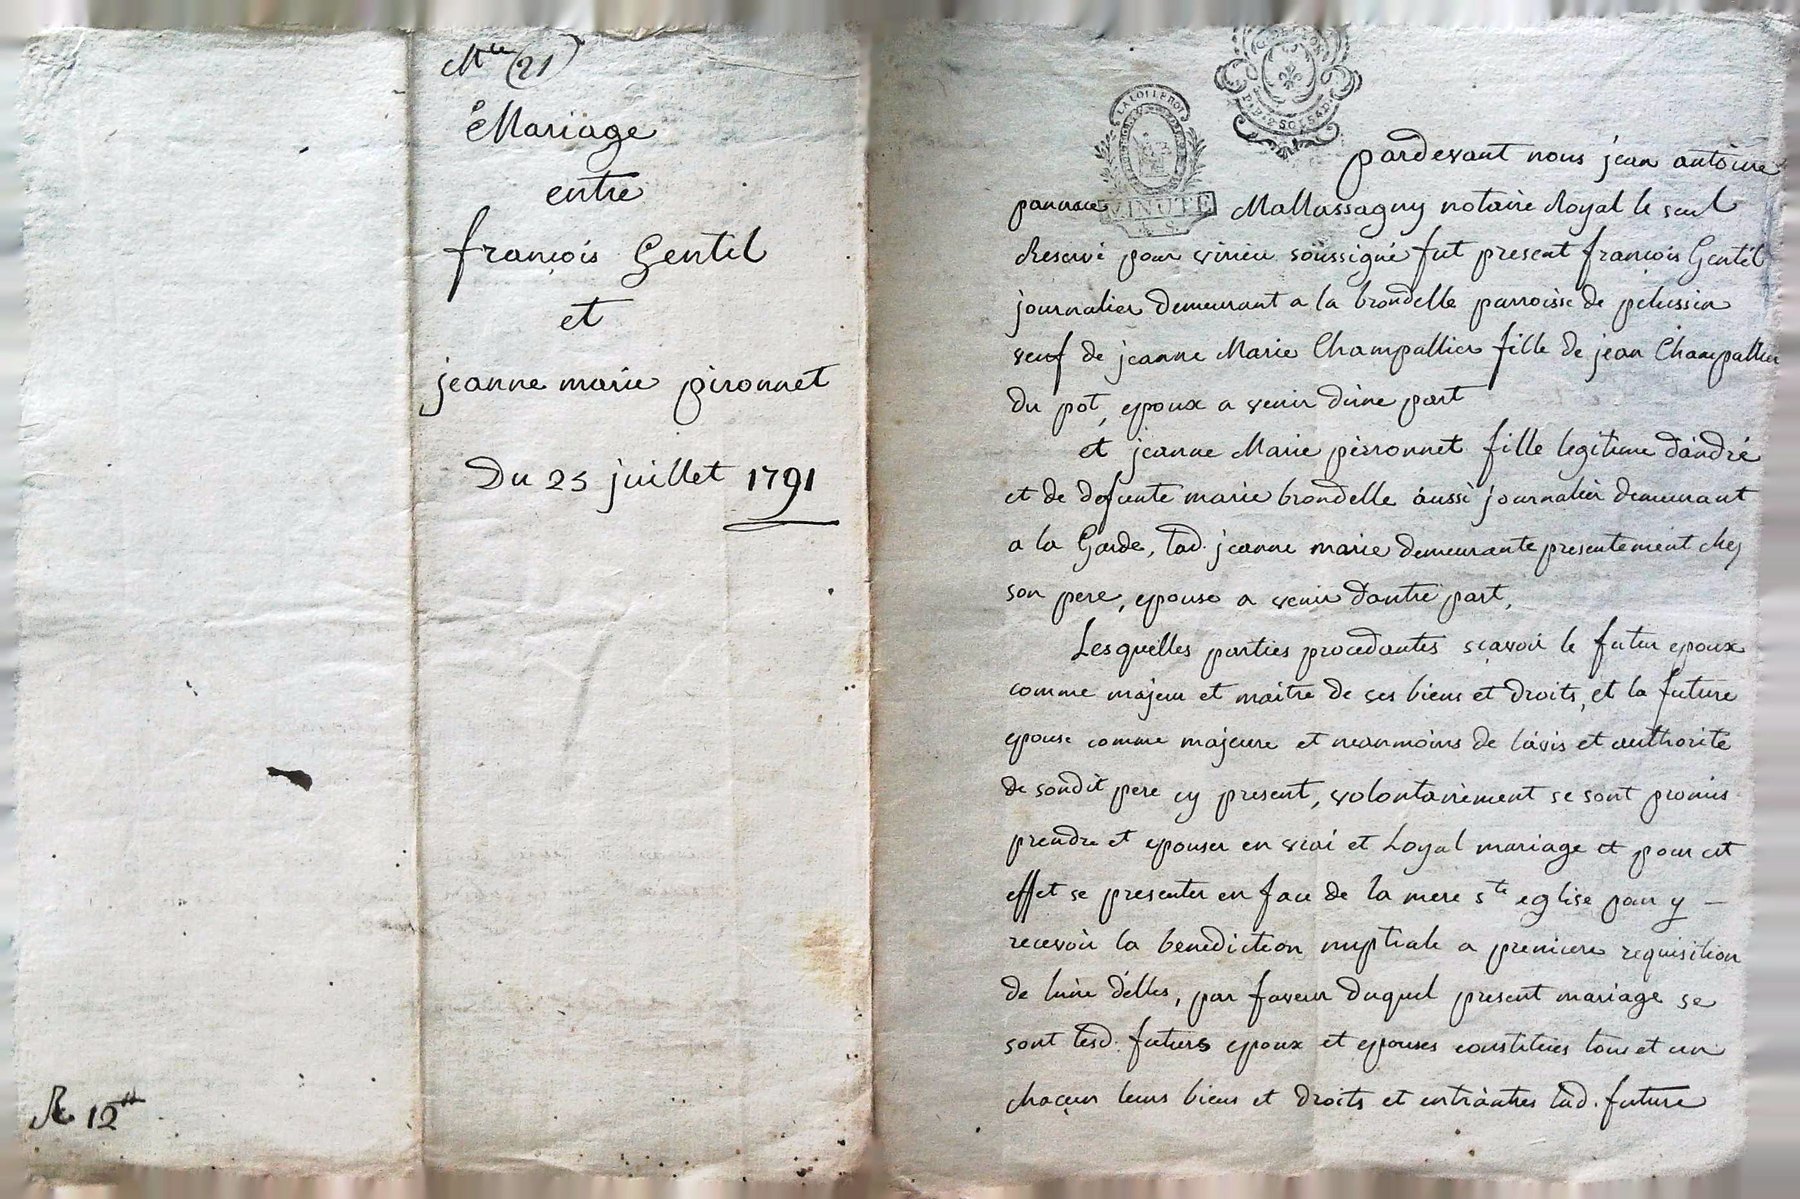 Mce (21)
Mariage
entre
françois Gentil
et
jeanne marie pironnet
Du 25 juillet 1791
R 12tt
LA LOI LE ROI
MINUTE
4 S.
pardevant nous jean antoine
pancrace Mallassagny notaire Royal le seul
Reservé pour virieu soussigné fut present françois Gentil
journalier demeurant a la brondelle parroisse de pelussin
veuf de jeanne Marie Champallier fille de jean Champallier
du pot, epoux a venir d'une part
et jeanne Marie perronnet fille legitime d'andré
et de defunte marie brondelle aussi journalier demeurant
a la Garde, lad. jeanne marie demeurante presentement chez
son pere, epouse a venir d'autre part,
Lesquelles parties procedantes sçavoir le futur epoux
comme majeur et maitre de ses biens et droits, et la future
epouse comme majeure et neanmoins de l'avis et authorité
de sondit pere cy present, volontairement se sont promis
prendre et epouser en vrai et Loyal mariage et pour cet
effet se presenter en face de la mere ste eglise pour y —
recevoir la benediction nuptiale a premiere requisition
de l'une d'elles, par faveur duquel present mariage se
sont lesd. futurs epoux et epouses constitués tous et un
chacun leurs biens et droits et entr'autres lad. future